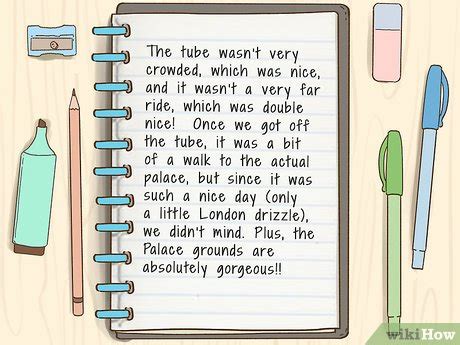 The tube wasn't very
crowded, which was nice,
and it wasn't a very far
ride, which was double
nice! Once we got off
the tube, it was a bit
of a walk to the actual
palace, but since it was
such a nice day (only
a little London drizzle),
we didn't mind. Plus, the
Palace grounds are
absolutely gorgeous!!
wikiHow